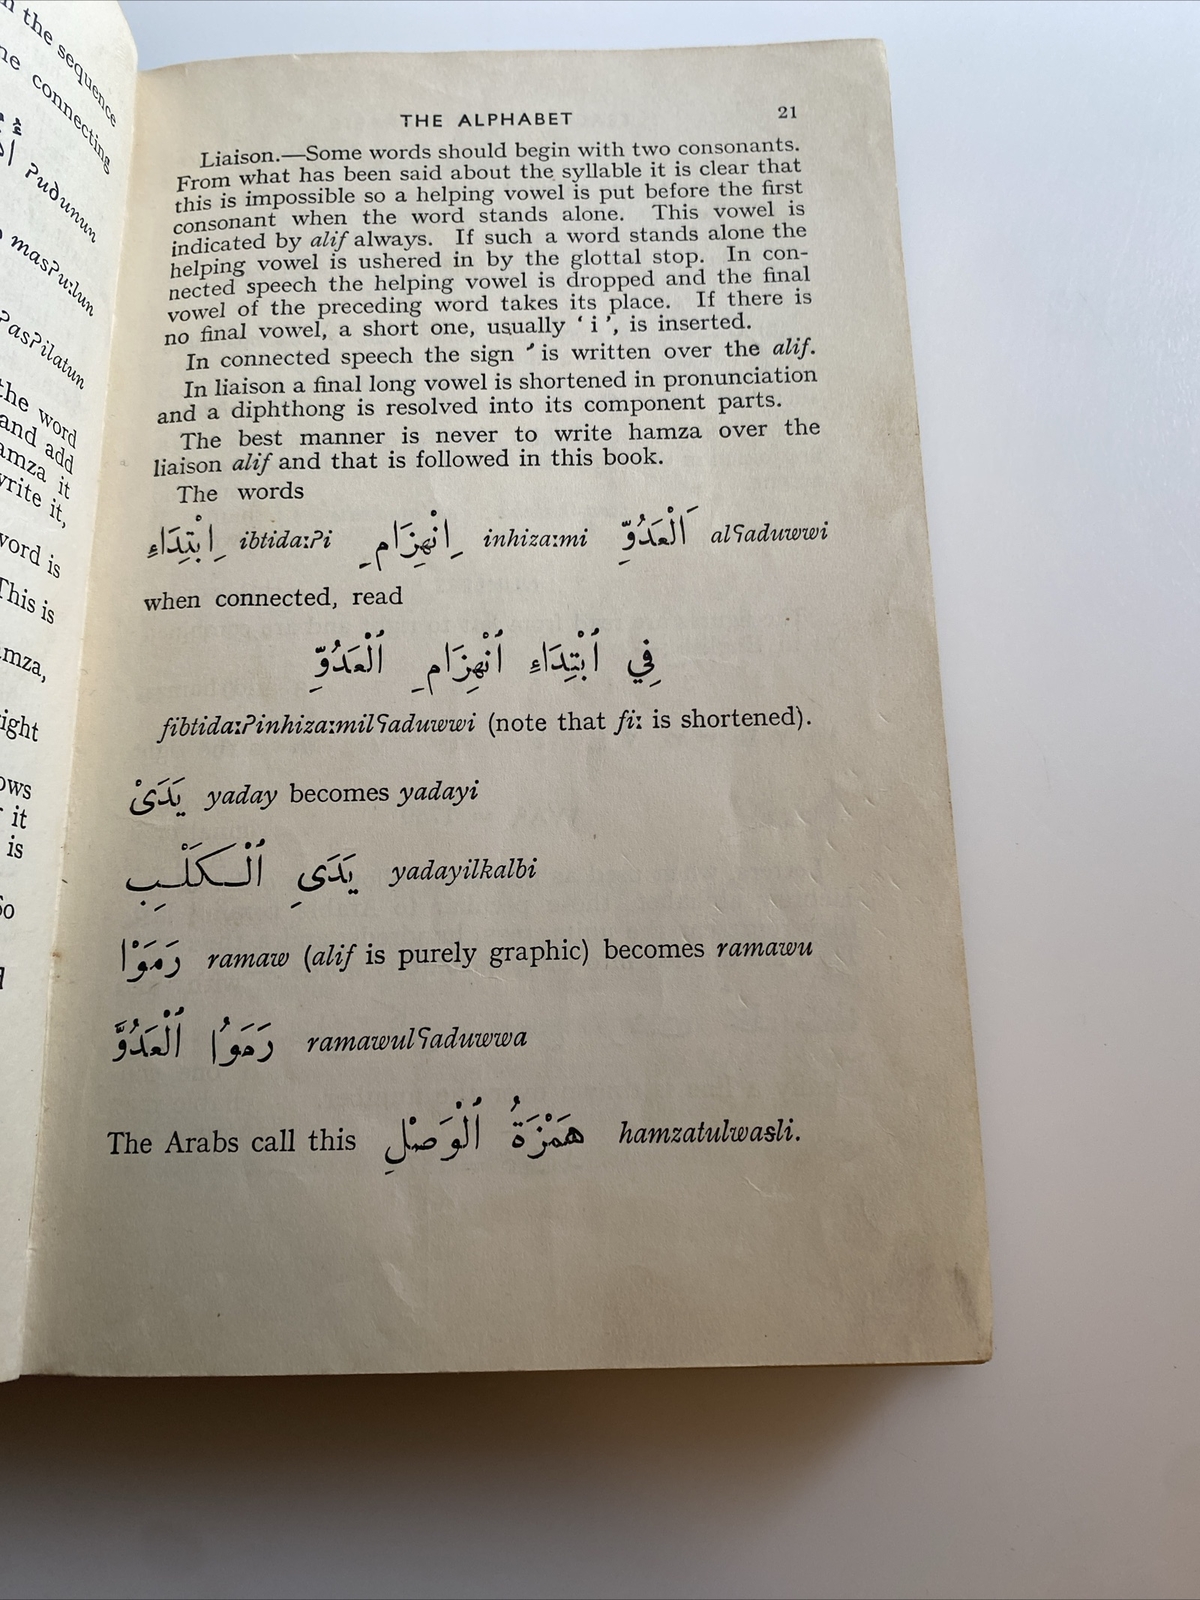 n the sequence
ne connecting
ʔuðunun
masʔuːlun
ʔasʔilatun
the word
and add
amza it
write it,
word is
This is
mza,
ight
ows
it
is
So
THE ALPHABET 21
Liaison.—Some words should begin with two consonants.
From what has been said about the syllable it is clear that
this is impossible so a helping vowel is put before the first
consonant when the word stands alone. This vowel is
indicated by alif always. If such a word stands alone the
helping vowel is ushered in by the glottal stop. In con-
nected speech the helping vowel is dropped and the final
vowel of the preceding word takes its place. If there is
no final vowel, a short one, usually ‘ i ’, is inserted.
In connected speech the sign ʼ is written over the alif.
In liaison a final long vowel is shortened in pronunciation
and a diphthong is resolved into its component parts.
The best manner is never to write hamza over the
liaison alif and that is followed in this book.
The words
اِبْتِدَاءِ ibtidaːʔi اِنْهِزَامِ inhizaːmi اَلْعَدُوِّ alʕaduwwi
when connected, read
فِي ٱبْتِدَاءِ ٱنْهِزَامِ ٱلْعَدُوِّ
fibtidaːʔinhizaːmilʕaduwwi (note that fiː is shortened).
يَدَىْ yaday becomes yadayi
يَدَىِ ٱلْكَلْبِ yadayilkalbi
رَمَوْا ramaw (alif is purely graphic) becomes ramawu
رَمَوُا ٱلْعَدُوَّ ramawulʕaduwwa
The Arabs call this هَمْزَةُ ٱلْوَصْلِ hamzatulwaṣli.